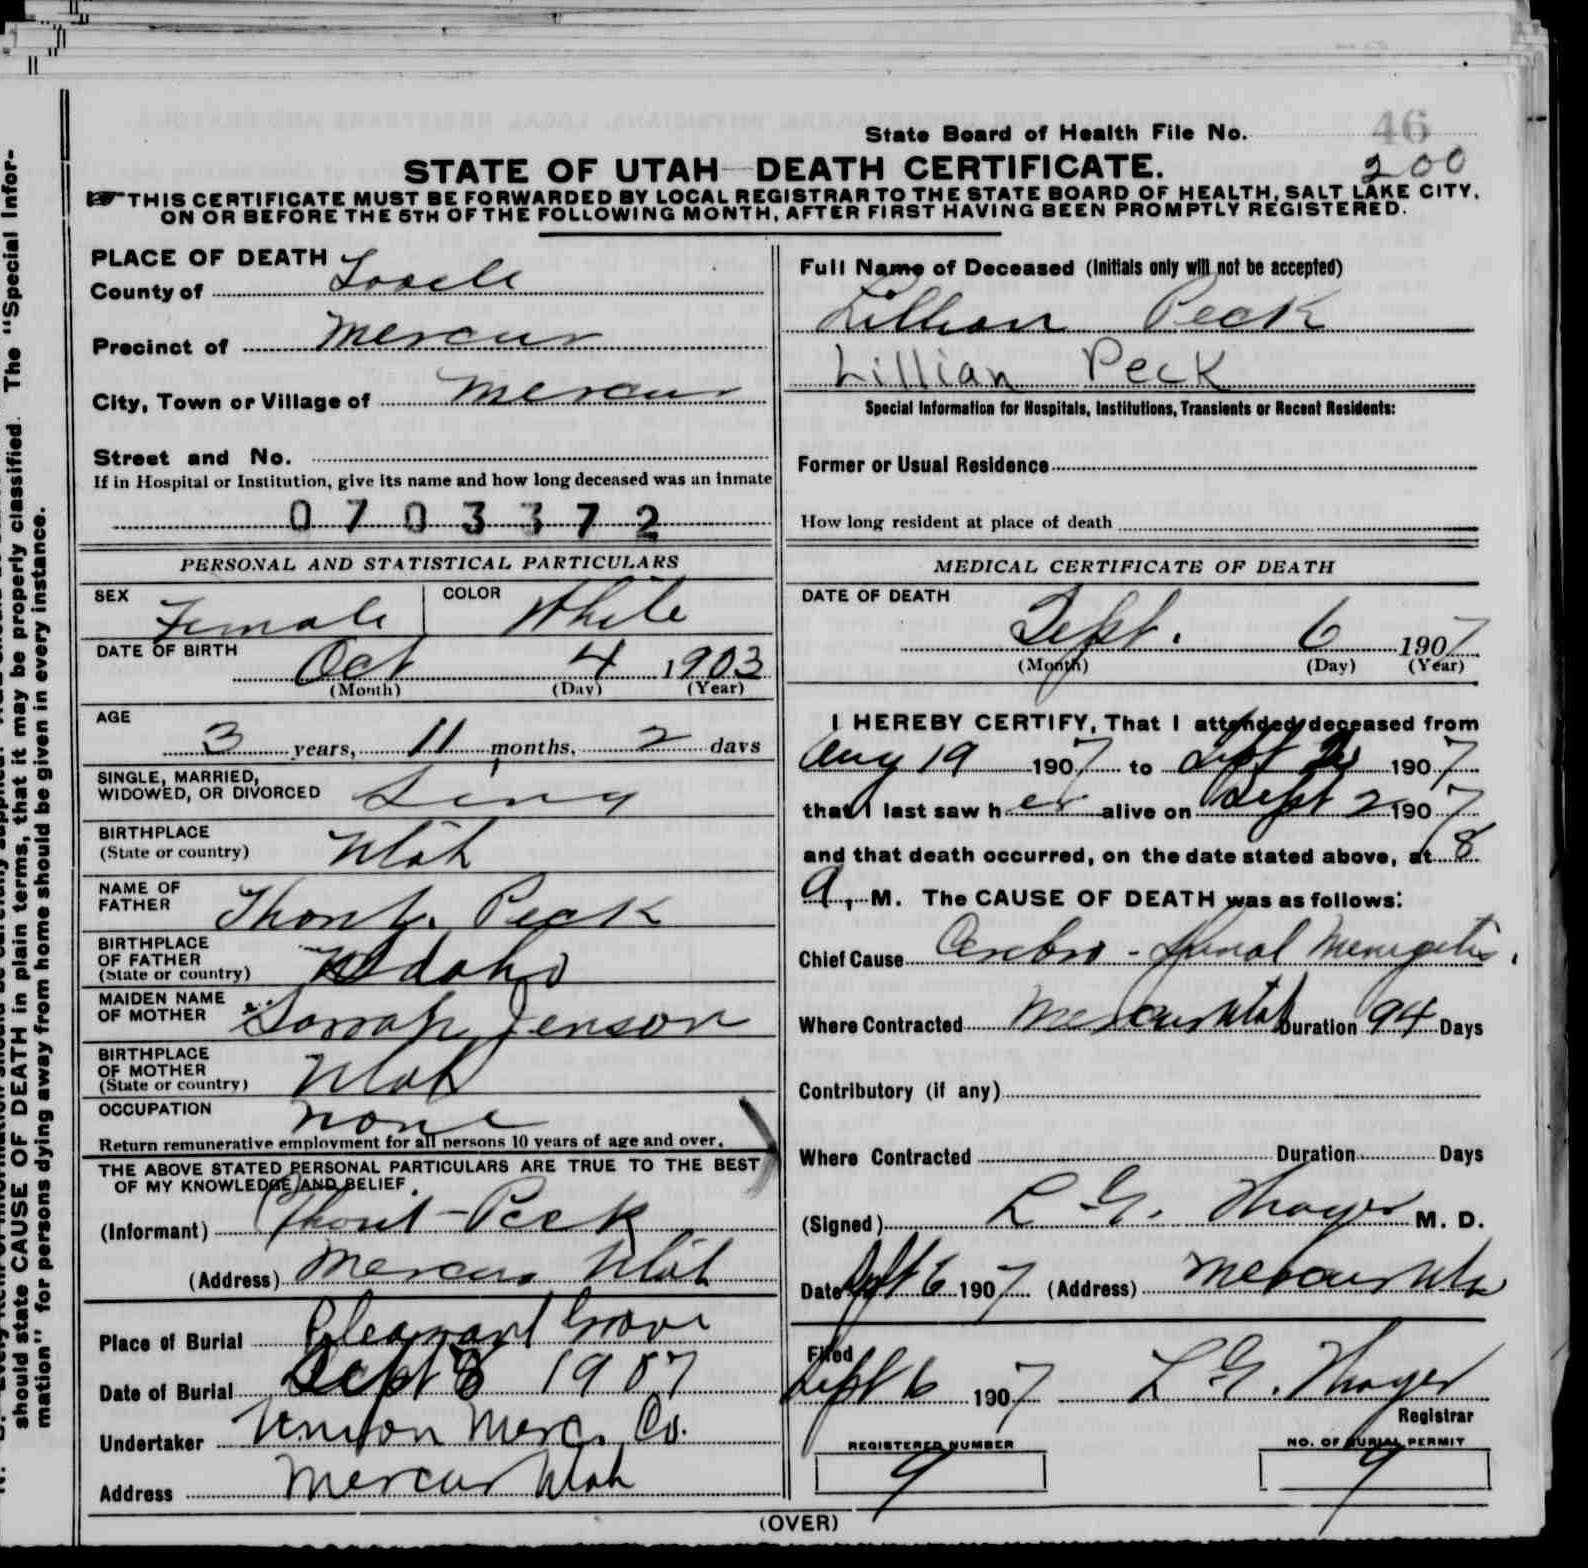 State Board of Health File No. 46
200
STATE OF UTAH—DEATH CERTIFICATE.
THIS CERTIFICATE MUST BE FORWARDED BY LOCAL REGISTRAR TO THE STATE BOARD OF HEALTH, SALT LAKE CITY,
ON OR BEFORE THE 5TH OF THE FOLLOWING MONTH, AFTER FIRST HAVING BEEN PROMPTLY REGISTERED.
PLACE OF DEATH
County of Tooele
Precinct of Mercur
City, Town or Village of Mercur
Street and No.
If in Hospital or Institution, give its name and how long deceased was an inmate
0703372
PERSONAL AND STATISTICAL PARTICULARS
SEX Female COLOR White
DATE OF BIRTH Oct 4 1903
(Month) (Day) (Year)
AGE
3 years, 11 months, 2 days
SINGLE, MARRIED,
WIDOWED, OR DIVORCED Sing
BIRTHPLACE
(State or country) Utah
NAME OF
FATHER Peck
BIRTHPLACE
OF FATHER
(State or country) Idaho
MAIDEN NAME
OF MOTHER Sarrah Jenson
BIRTHPLACE
OF MOTHER
(State or country) Utah
OCCUPATION none
Return remunerative employment for all persons 10 years of age and over.
THE ABOVE STATED PERSONAL PARTICULARS ARE TRUE TO THE BEST
OF MY KNOWLEDGE AND BELIEF.
(Informant) Peck
(Address) Mercur Utah
Place of Burial Pleasant Grove
Date of Burial Sept 8 1907
Undertaker Union Merc. Co.
Address Mercur Utah
Full Name of Deceased (Initials only will not be accepted)
Lillian Peck
Lillian Peck
Special Information for Hospitals, Institutions, Transients or Recent Residents:
Former or Usual Residence
How long resident at place of death
MEDICAL CERTIFICATE OF DEATH
DATE OF DEATH
Sept. 6 1907
(Month) (Day) (Year)
I HEREBY CERTIFY, That I attended deceased from
Aug 19 1907 to Sept 2 1907
that I last saw her alive on Sept 2 1907
and that death occurred, on the date stated above, at 8
a, M. The CAUSE OF DEATH was as follows:
Chief Cause Cerebro-Spinal Menigetis.
Where Contracted Mercur Utah Duration 94 Days
Contributory (if any)
Where Contracted Duration Days
(Signed) L G. Thayer M. D.
Date Sept 6 1907 (Address) Mercur Utah
Filed
Sept 6 1907 L G. Thayer
Registrar
REGISTERED NUMBER NO. OF BURIAL PERMIT
9 9
(OVER)
should state CAUSE OF DEATH in plain terms, that it may be properly classified. The "Special Infor-
mation" for persons dying away from home should be given in every instance.